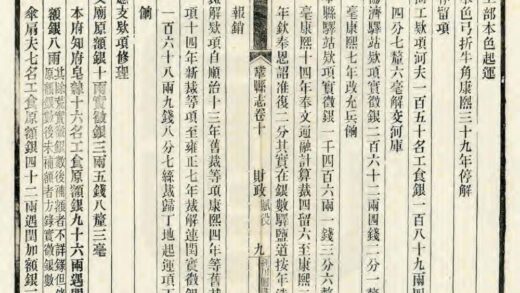 工部本色起運
本色弓折牛角康熙三十九年停解
存留項
河工欵項河夫一百五十名工食銀一百八十九兩
四分七釐六毫解交河庫
驛站欵項實徵銀二百六十二兩四錢二分一
毫康熙七年改充兵餉
縣驛站欵項實徵銀一千四百六兩一錢三分六
毫康熙十四年奉文通融計算裁四留六至康熙
年欽奉恩詔准復二分其實在銀數驛鹽道按年
報銷
鞏縣志卷十
財政
賦役
九
裁解欵自順治十三年舊裁等項康熙四年等舊
項十四年新裁等項至雍正七年裁解連閏實徵銀
一百六十八兩九錢八分七絲裁歸丁地起運項下
餉
支欵項修理
文廟原額銀十兩實徵銀三兩五錢八釐三毫
本府知府皂隸十六名工食原額銀九十六兩遇閏
額銀八兩
其除荒實徵銀數後補額者不詳錄但
原額銀數後未補額者方錄實徵銀數
傘扇夫七名工食原額銀四十二兩遇閏加額銀三